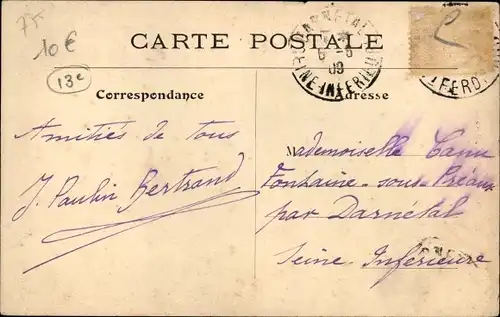 75
10€
13e
CARTE POSTALE
DARNETAL
6 - 6
09
SEINE-INFERIEURE
Correspondance
Adresse
Amitiés de tous
J. Paulin Bertrand
Mademoiselle Canu
Fontaine-sous-Préaux
par Darnétal
Seine Inférieure